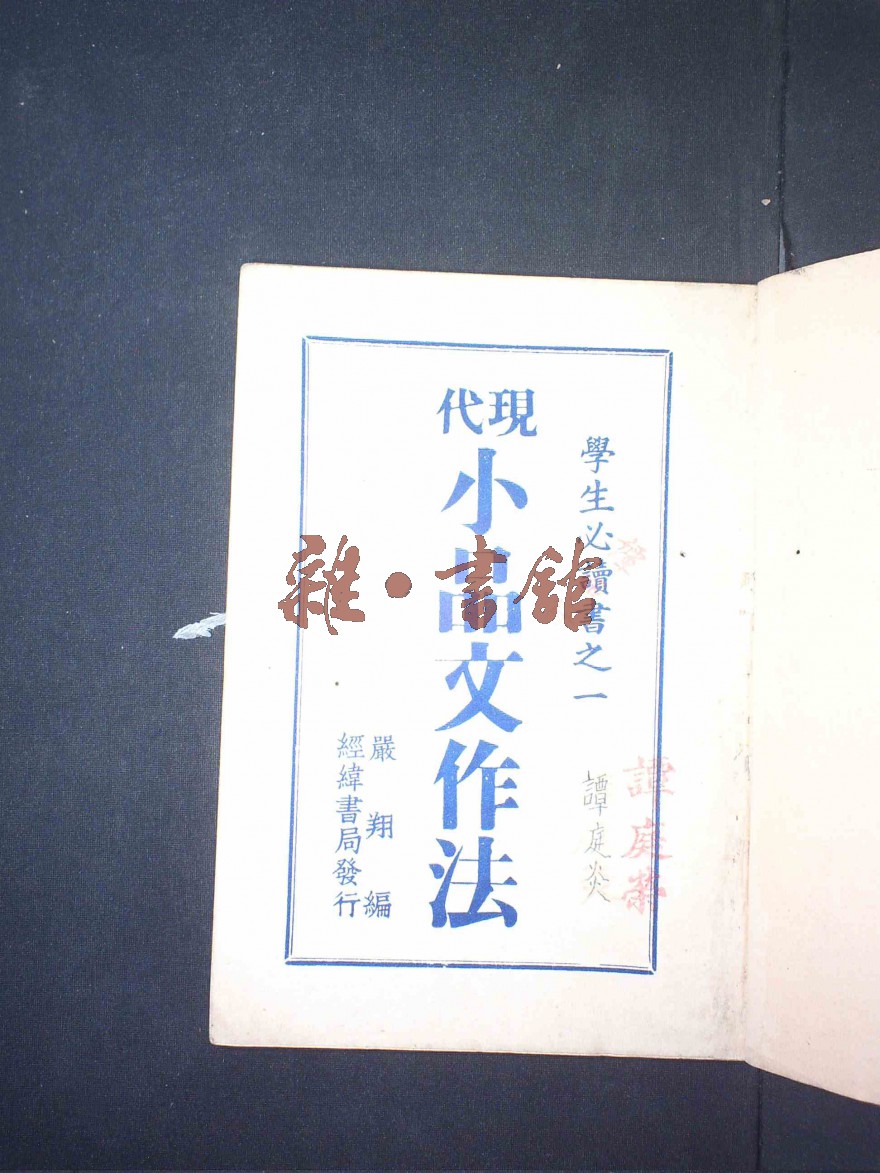 學生必讀書之一
現代
小品文作法
嚴翔編
經緯書局發行
譚庭炎
譚庭
雜·書館